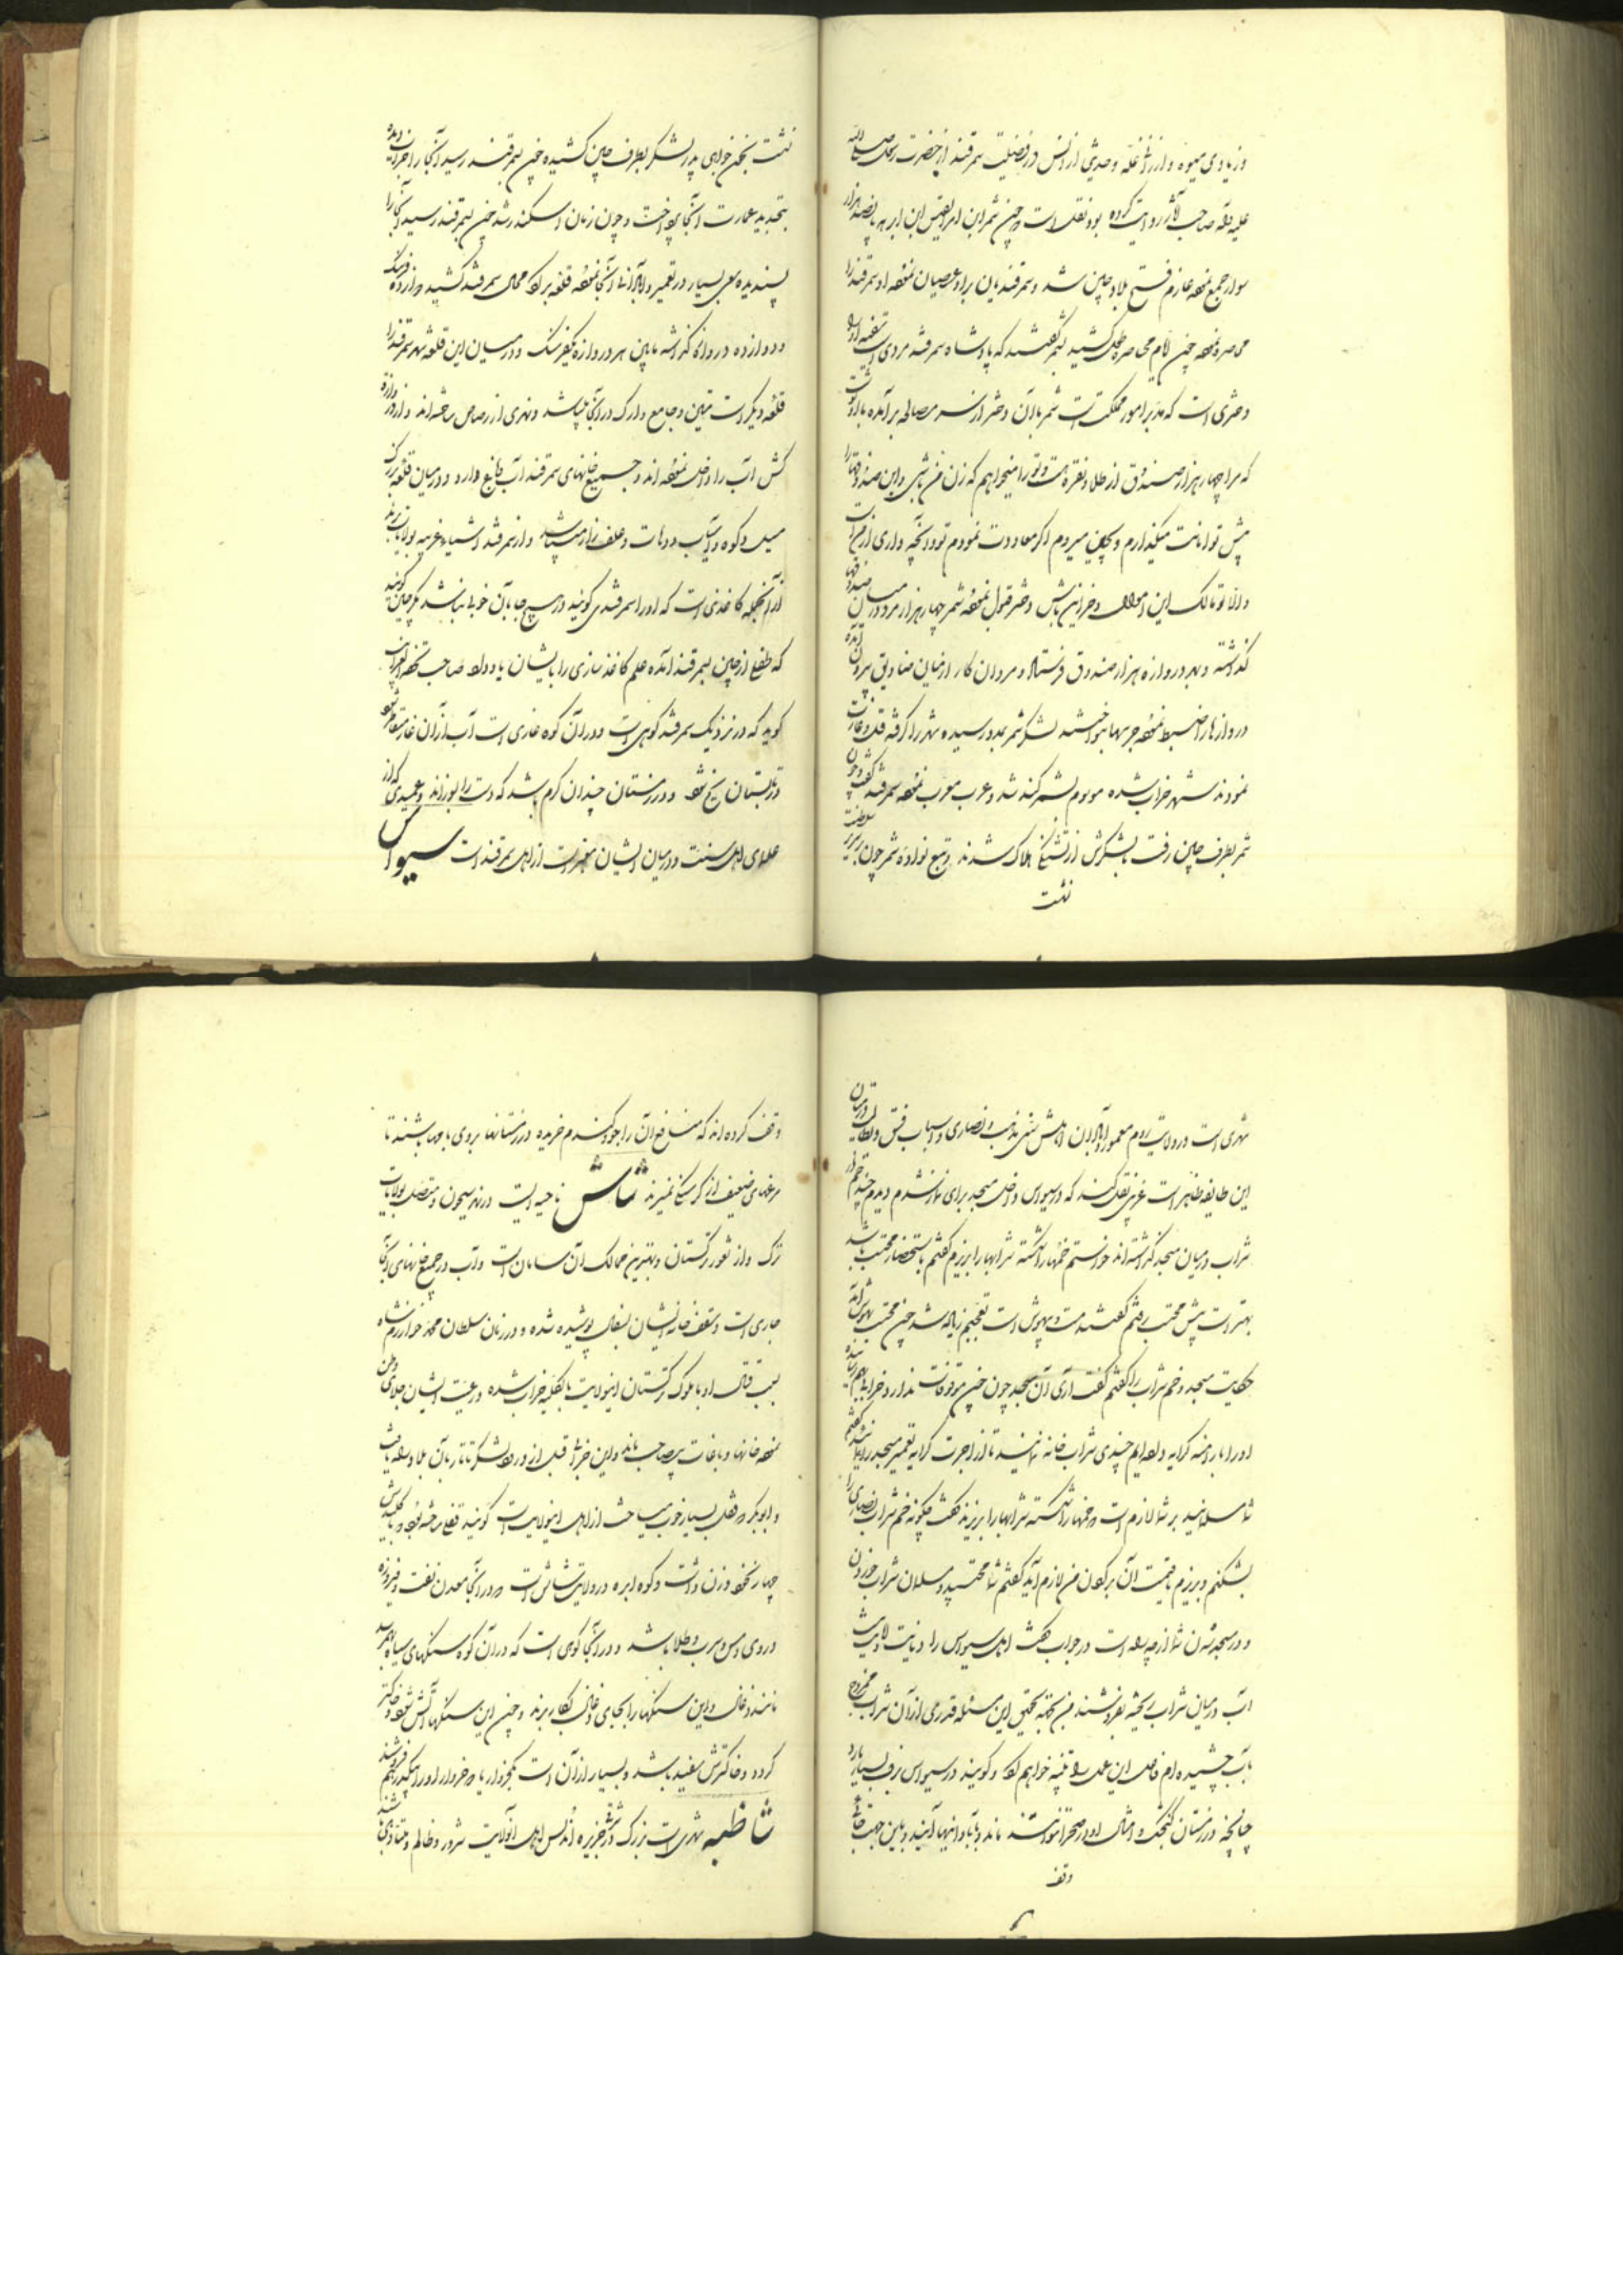 و زیادی میوه و ارزانی غله و حدیثی از انس در فضیلت سمرقند از حضرت رسول صلی الله
علیه وآله صاحب آثار روایت کرده بود نقل است چون شمر ابن ابرهه با پانصد هزار
سوار جمع نموده عازم فتح بلاد چین شد و سمرقندیان براو عصیان نموده او سمرقند را
محاصره نموده چون ایام محاصره بطول کشید بشمر گفتند که پادشاه سمرقند مردی است سفیه او را
دختری است که مدبر امور مملکت است شمر با آن دختر از سر مصالحه برآمده باو نوشت
که مرا چهار هزار صندوق از طلا و نقره هست و تو را میخواهم که زن من باشی و این صندوقها را
پیش تو امانت میگذارم و بچین میروم اگر معاودت نمودم تو و آنچه داری از من است
والا تو مالک این اموال و خزاین باش دختر قبول نموده شمر چهار هزار مرد در میان صندوقها
گذاشته و بهر دروازه هزار صندوق فرستاد و مردان کار از میان صنادیق بیرون آمده
دروازها را ضبط نموده جرسها نواختند لشکر شمر بمدد رسیده شهر را گرفته قتل و غارت
نمودند شهر خراب شده موسوم بشمر کند شد و عرب معرب نموده سمرقند گفت و چون
شمر بطرف چین رفت با لشکرش از تشنگی هلاک شدند و تبع نواده شمر چون بر سریر سلطنت
نشت
نشت بخون خواهی پدر لشکر بطرف چین کشیده چون بسمرقند رسید آنجا را خراب دیده
بتجدید عمارت آنجا پرداخت و چون زمان اسکندر شد چون بسمرقند رسید آنجا را
پسندیده سعی بسیار در تعمیر و آبادانی آنجا نموده قلعه بزرک محال سمرقند کشید دوازده فرسنگ
و دوازده دروازه گذاشته مابین هر دروازه یکفرسنگ و در میان این قلعه شهر سمرقند را
قلعه دیگر است متین و جامع و ارک در آنجا میباشد و نهری از رصاص ساخته اند و از دروازه
کش آب را داخل نموده اند و جمیع خانهای سمرقند آب و باغ دارد و در میان قلعه بزرک
سیل و کوه و آسیاب و دهات و علف زار میباشد و از سمرقند اشیاء غریبه بولایات برند
از آنجمله کاغذی است که او را سمرقندی گویند در هیچ جا بآن خوبی نباشد مگر چین گویند
که طفلی از چین بسمرقند آمده علم کاغذ سازی را بایشان یاد داد صاحب تحفه الغرایب
گوید که در نزدیک سمرقند کوهی است و در آن کوه غاری است آب از آن غار متقاطر شود
در تابستان یخ شود و در زمستان چندان گرم باشد که دست را بسوزاند و عمیدی که از
علمای اهل سنت و در میان ایشان معتبر است از اهل سمرقند است سیواس
شهری است در ولایت روم معمور و آبادان اهلش سنی مذهب و نصاری و اسباب فسق و بطالت در میان
این طایفه ظاهر است عزیزی نقل کند که در سیواس داخل مسجد برای نماز شدم دیدم چند خم از
شراب در میان مسجد گذاشته اند خواستم خمها را شکسته شرابها را بریزم گفتم باستحضار محتسب باشد
بهتر است پیش محتسب رفتم گفتند مست و بیهوش است تعجبم زیاده شد چون محتسب بهوش آمد
حکایت مسجد و خم شراب را گفتم گفت آری آن مسجد چون موقوفات ندارد و خراب
او را بارامنه کرایه داده ایم چندی شراب خانه نمایند تا از اجرت کرایه تعمیر مسجد را نماید گفتم
شما مسلمانید بر شما لازم است خمها را شکسته شرابها را بریزند گفت چگونه خم شراب نصاری را
بشکنم و بریزم تا قیمت آن بگردن من لازم آید گفتم شما محتسبید و مسلمان شراب خوردن
و در مسجد شدن شما از چه راه است در جواب گفت اهل سیواس را دیانت و امانت نیست
آب در میان شراب ریخته بفروشند من بجهة تحقیق این مسئله قدری از آن شراب ممزوج
بآب چشیده ام فاعل این عمل را تنبیه خواهم کرد و گویند در سیواس برف بسیار بارد
چنانچه در زمستان گنجشک و امثال او در صحرا نتوانستند ماند و بآبادانیها آیند و باین جهت
وقف
وقف کرده اند که منافع آن را جو و گندم خریده در زمستانها بروی بامها بپاشند تا
مرغهای ضعیف از گرسنگی نمیرند شاش ناحیه ایست در نهر سیحون و متصل بولایات
ترک و از ثغور ترکستان و بهترین ممالک آن سامان است و آب در جمیع خانهای آنجا
جاری است و سقف خانه ایشان بسفال پوشیده شده و در زمان سلطان محمد خوارزم شاه
بسبب قتال او با ملوک ترکستان اینولایت بالکلیه خراب شده و رعیت ایشان جلای وطن
نموده خانها و باغات بی صاحب ماند و این خرابی قبل از ورود لشکر تاتار بآن بلاد راه یافت
و ابوبکر قفال بسیار خوب میساخت از اهل اینولایت است گویند قفلی ساخته بود که با کلیدش
چهار نخود وزن داشت و کوه ابره در ولایت شاش است در آنجا معدن نفت و فیروزه
و روی و مس و سرب و طلا باشد و در آنجا کوهی است که در آن کوه سنگهای سیاه بهم رسد
مانند ذغال و این سنگها را بجای ذغال بکار برند و چون این سنگها آتش شود و خاکستر
گردد و خاکسترش سفید باشد و بسیار از آن است یکخروار یا دو خروار او را بیکدرهم فروشند
شاطبه شهری است بزرک در شرقی جزیره اندلس اهل آنولایت شرور و ظالم و متعدی باشند